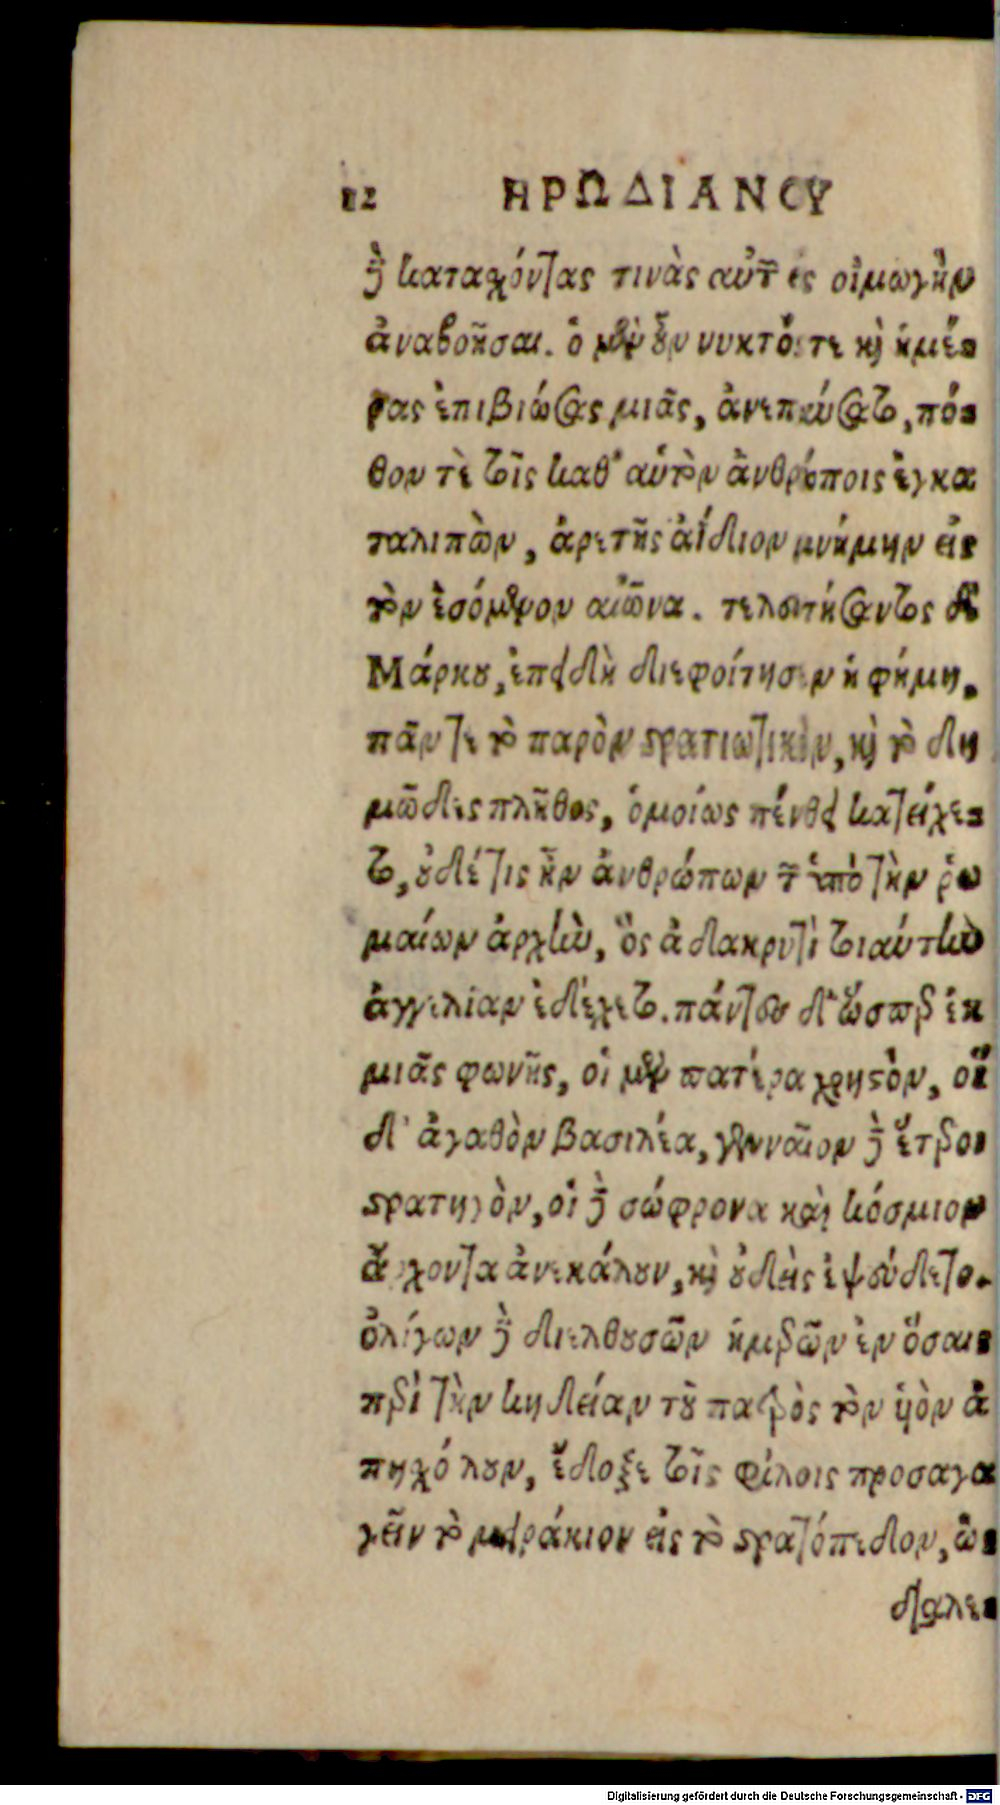 12 ΗΡΩΔΙΑΝΟΥ
δὲ κατασχόντας τινὰς αὐτῶν ἐς οἰμωγὴν
ἀναβοῆσαι. ὁ μὲν οὖν νυκτός τε καὶ ἡμέ-
ρας ἐπιβιώσας μιᾶς, ἀνεπαύσατο, πό-
θον τὲ τοῖς καθ' αὑτὸν ἀνθρώποις ἐγκα
ταλιπὼν, ἀρετῆς ἀΐδιον μνήμην εἰς
τὸν ἐσόμενον αἰῶνα. τελευτήσαντος δὲ
Μάρκου, ἐπειδὴ διεφοίτησεν ἡ φήμη,
πᾶν τε τὸ παρὸν στρατιωτικὸν, καὶ τὸ δη
μῶδες πλῆθος, ὁμοίως πένθει κατείχε-
το, οὐδέ τις ἦν ἀνθρώπων τῶν ὑπὸ τὴν ῥω
μαίων ἀρχὴν, ὃς ἀδακρυτὶ τοιαύτην
ἀγγελίαν ἐδέχετο. πάντες δ' ὥσπερ ἐκ
μιᾶς φωνῆς, οἱ μὲν πατέρα χρηστὸν, οἵ
δ' ἀγαθὸν βασιλέα, γενναῖον δὲ ἕτεροι
στρατηγὸν, οἱ δὲ σώφρονα καὶ κόσμιον
ἄρχοντα ἀνεκάλουν, καὶ οὐδεὶς ἐψεύδετο.
ὀλίγων δὲ διελθουσῶν ἡμερῶν ἐν ὅσαις
περὶ τὴν κηδείαν τοῦ πατρὸς τὸν υἱὸν ἀ
πησχόλουν, ἔδοξε τοῖς φίλοις προσαγα
γεῖν τὸ μειράκιον εἰς τὸ στρατόπεδον, ὡς
διαλε-
Digitalisierung gefördert durch die Deutsche Forschungsgemeinschaft - DFG